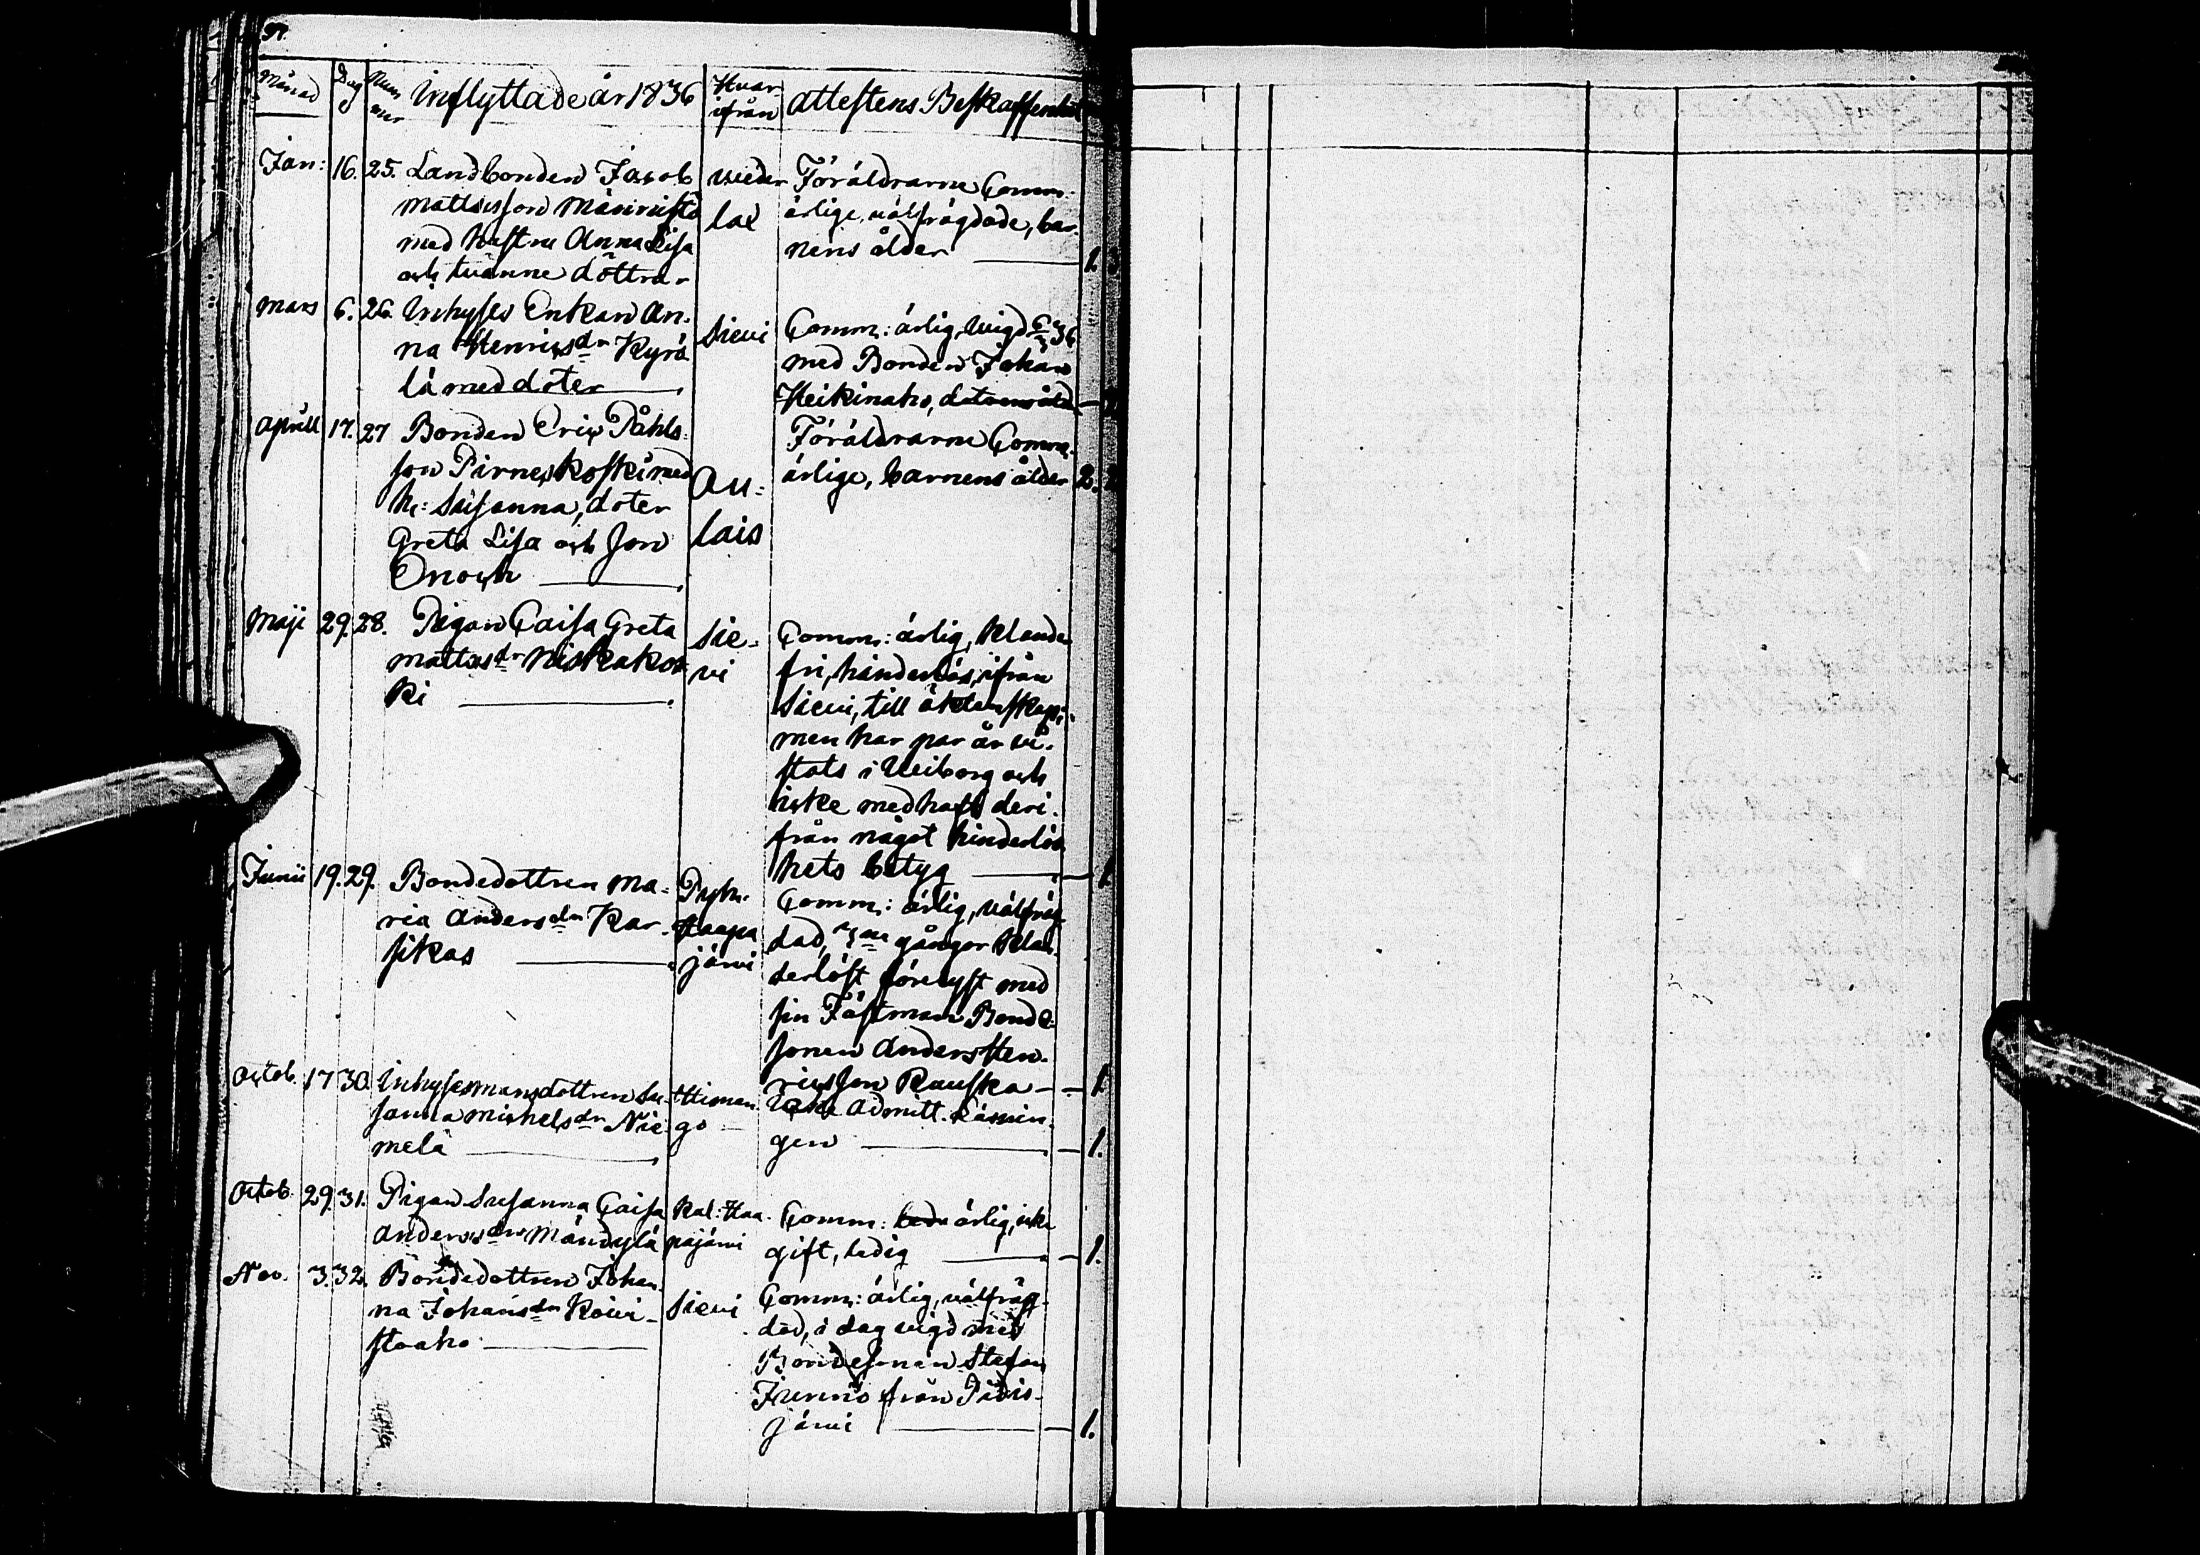 Månad Dag Num mer Inflyttade år 1836 Hvar ifrån Attestens Beskaffenhet
Jan: 16. 25. Landbonden Jacob
Mattsson Männistö
med hustru Anna Lisa
och tvänne döttrar
Wieder
lax
Föräldrarne Comm:
ärlige, välfrägdade, bar-
nens ålder 1. 3
Mars 6. 26. Inhyses Enkan An-
na Henricsdr Kyrö
lä med doter
Sievi
Comm: ärlig, wigd 6/3 36
med Bonden Johan
Heikinaho, dotrens ålder
Aprill 17. 27 Bonden Eric Påhls-
son Pirneskoski med
h: Susanna, doter
Greta Lisa och son
Enoch
Au-
lais
Föräldrarne Comm.
ärlige, barnens ålder 2. 2
Maji 29. 28. Pigan Caisa Greta
Mattsdr Niskakos-
ki
Sie-
vi
Comm: ärlig, klander
fri, hinderlös, ifrån
Sievi, till äktenskap;
men har par år vi-
stats i Weiborg och
icke medhaft deri-
från något hinderlös
hets betyg 1
Junii 19. 29. Bondedottren Ma-
ria Andersdr Kar-
sikas
Pyh.
Haapa
järvi
Comm: ärlig, välfräg-
dad, 3ne gångor klan-
derlöst förelyst med
sin Fästman Bonde-
sonen Anders Hen-
ricsson Rauska 1
Octob. 17 30. Inhysesmansdottren Su-
sanna Michelsdr Nie-
melä
Himan
go
Icke Admitt. Läsnin-
gen 1.
Octob. 29. 31. Pigan Susanna Caisa
Andersdr Mändylä
Kal: Haa-
pajärvi
Comm: ärlig, icke
gift, ledig 1.
Nov. 3. 32. Bondedottren Johan-
na Johansdr Koivi-
stoaho
Sievi
Comm: ärlig, välfräg-
dad, i dag wigd med
Bondesonen Stefan
Junno från Pidis-
järvi 1.